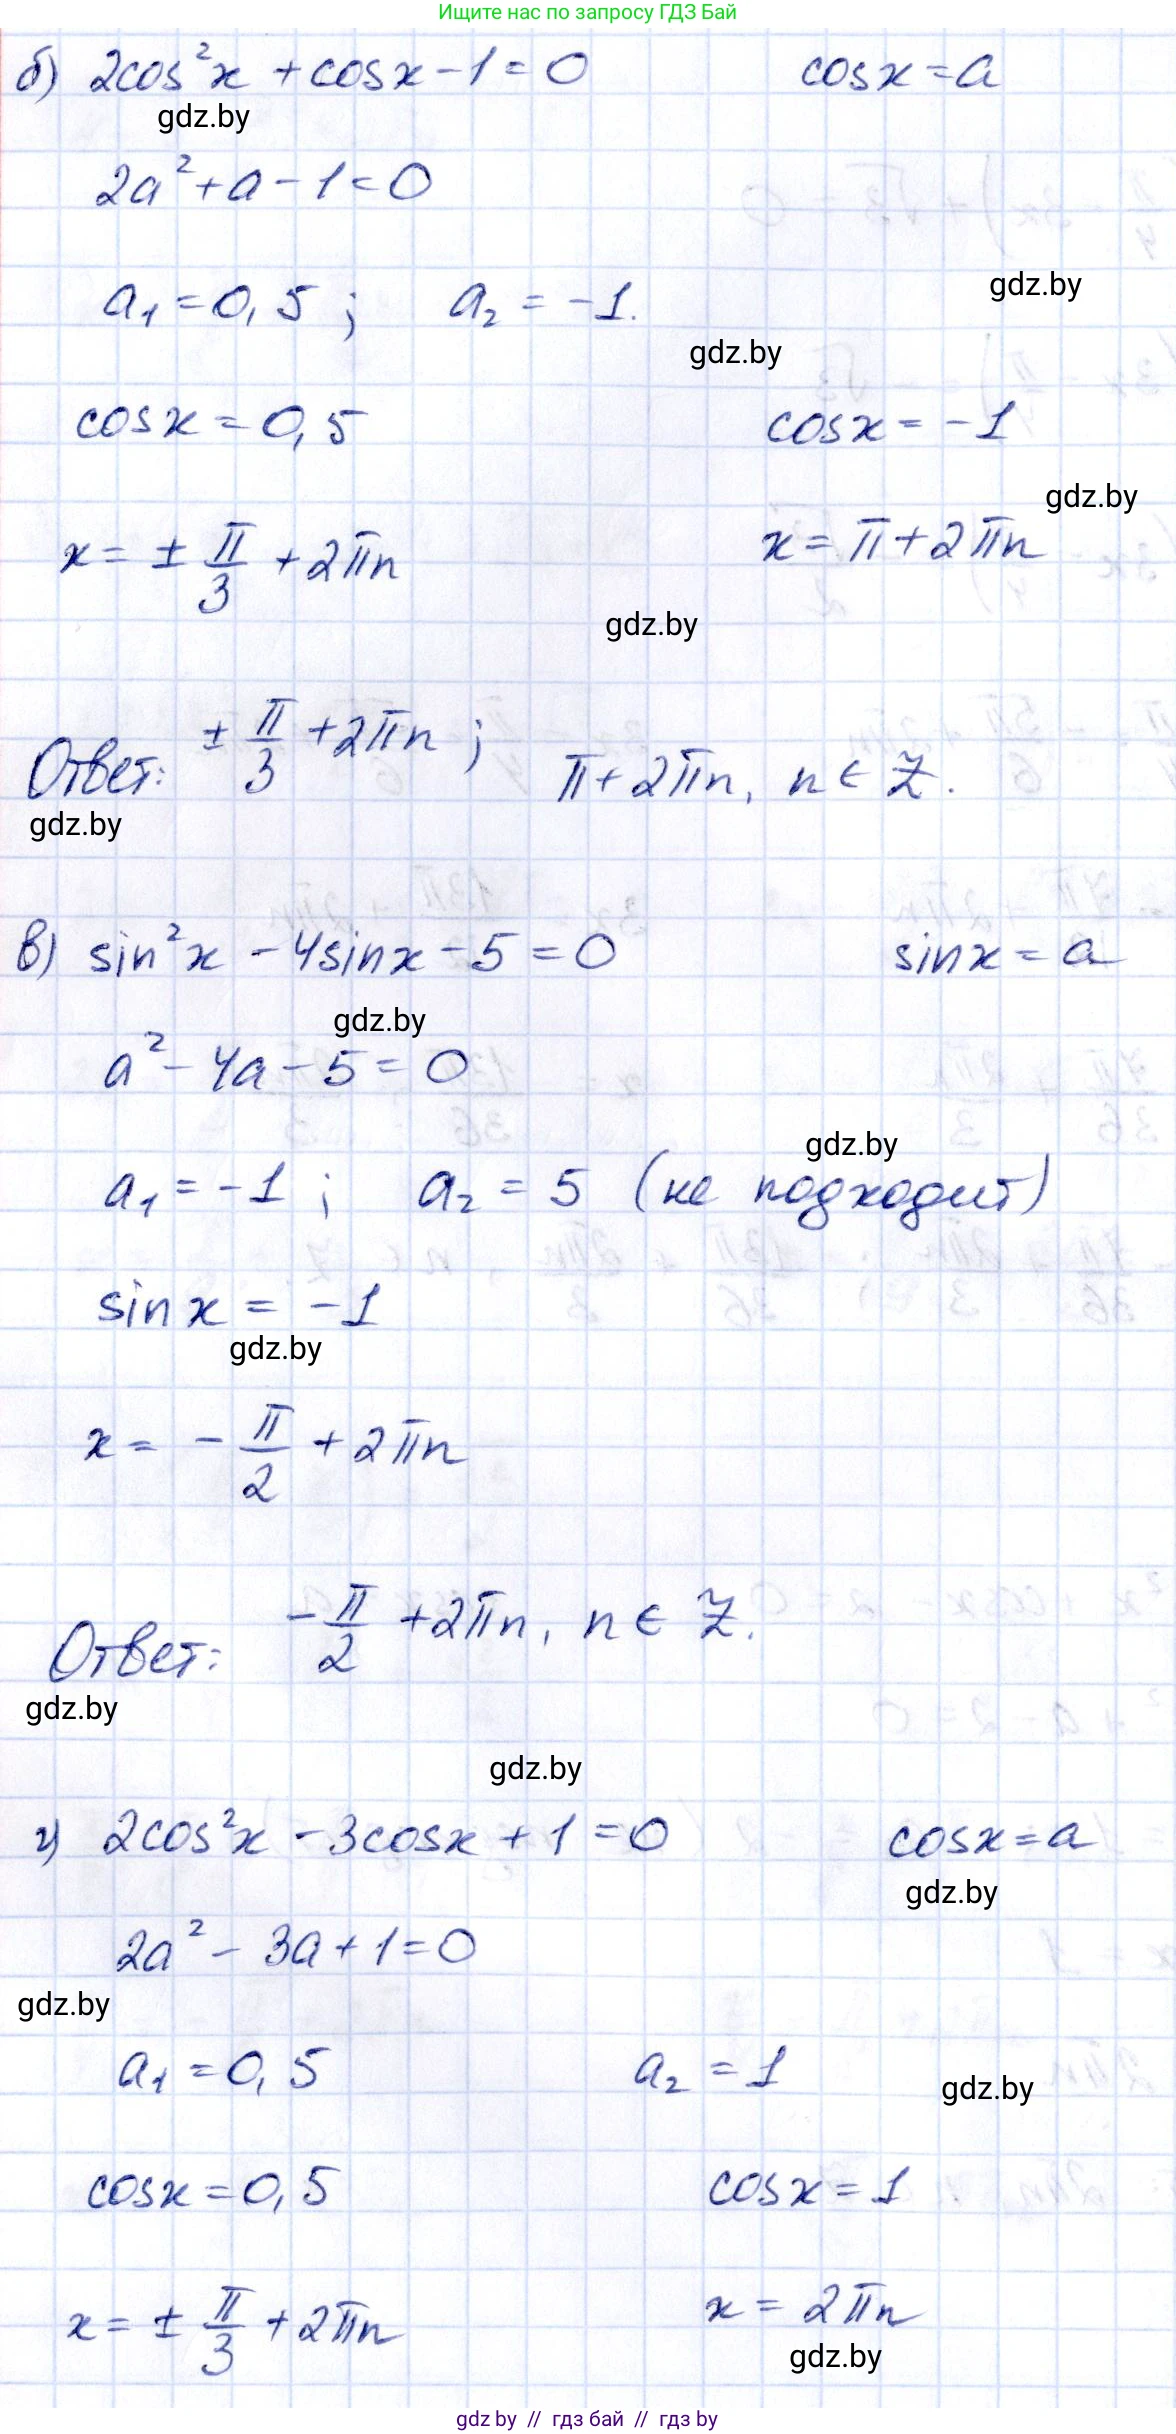 Ищите нас по запросу ГДЗ Бай
б) 2cos²x + cosx - 1 = 0 cosx = a
gdz.by
2a² + a - 1 = 0
gdz.by
a₁ = 0,5 ; a₂ = -1.
gdz.by
cosx = 0,5 cosx = -1
gdz.by
x = ± π/3 + 2πn x = π + 2πn
gdz.by
Ответ: ± π/3 + 2πn ; π + 2πn, n ∈ Z.
gdz.by
в) sin²x - 4sinx - 5 = 0 sinx = a
gdz.by
a² - 4a - 5 = 0
gdz.by
a₁ = -1 ; a₂ = 5 (не подходит)
sinx = -1
gdz.by
x = - π/2 + 2πn
Ответ: - π/2 + 2πn, n ∈ Z.
gdz.by
gdz.by
г) 2cos²x - 3cosx + 1 = 0 cosx = a
gdz.by
2a² - 3a + 1 = 0
gdz.by
a₁ = 0,5 a₂ = 1
gdz.by
cosx = 0,5 cosx = 1
x = ± π/3 + 2πn x = 2πn
gdz.by
gdz by // гдз бай // гдз by